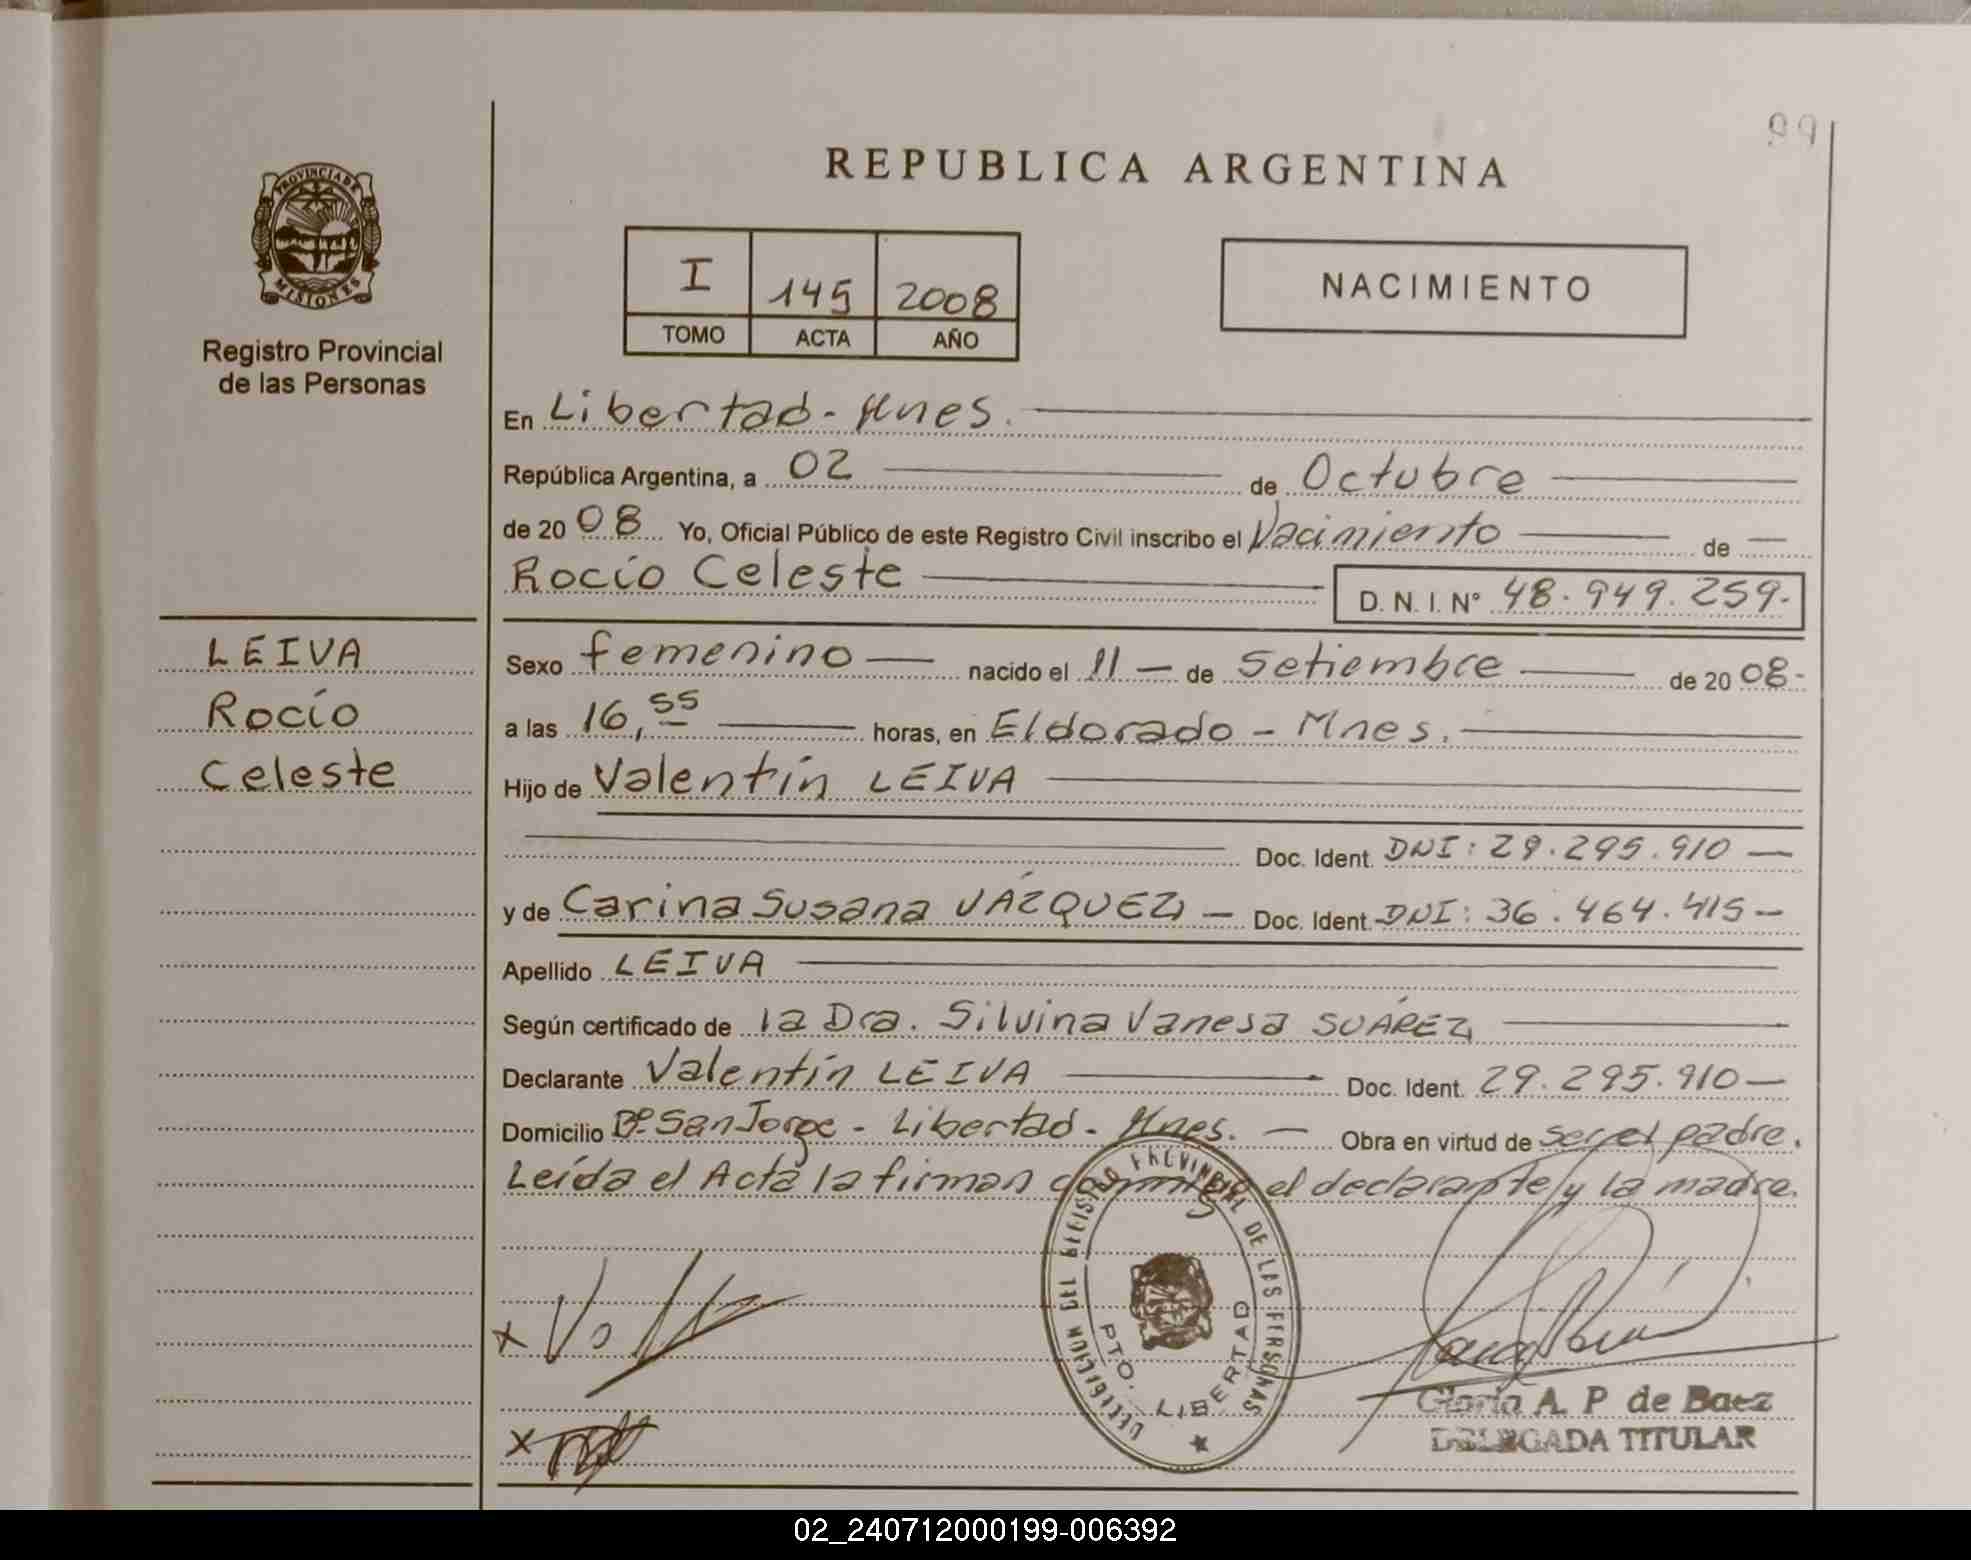 99
PROVINCIA DE
MISIONES
Registro Provincial
de las Personas
REPUBLICA ARGENTINA
I 145 2008
TOMO ACTA AÑO
NACIMIENTO
En Libertad - Mnes.
República Argentina, a 02 de Octubre
de 2008 Yo, Oficial Público de este Registro Civil inscribo el Nacimiento de
Rocío Celeste D. N. I. Nº 48.949.259.
LEIVA
Rocío
Celeste
Sexo femenino nacido el 11 de Setiembre de 2008
a las 16,55 horas, en Eldorado - Mnes.
Hijo de Valentín LEIVA
Doc. Ident. DNI: 29.295.910
y de Carina Susana VÁZQUEZ Doc. Ident. DNI: 36.464.415
Apellido LEIVA
Según certificado de la Dra. Silvina Vanesa SUÁREZ
Declarante Valentín LEIVA Doc. Ident. 29.295.910
Domicilio Bº San Jorge - Libertad - Mnes. Obra en virtud de ser el padre.
Leída el Acta la firman conmigo el declarante y la madre.
DELEGACION DEL REGISTRO PROVINCIAL DE LAS PERSONAS
PTO. LIBERTAD
Gloria A. P. de Baez
DELEGADA TITULAR
02_240712000199-006392